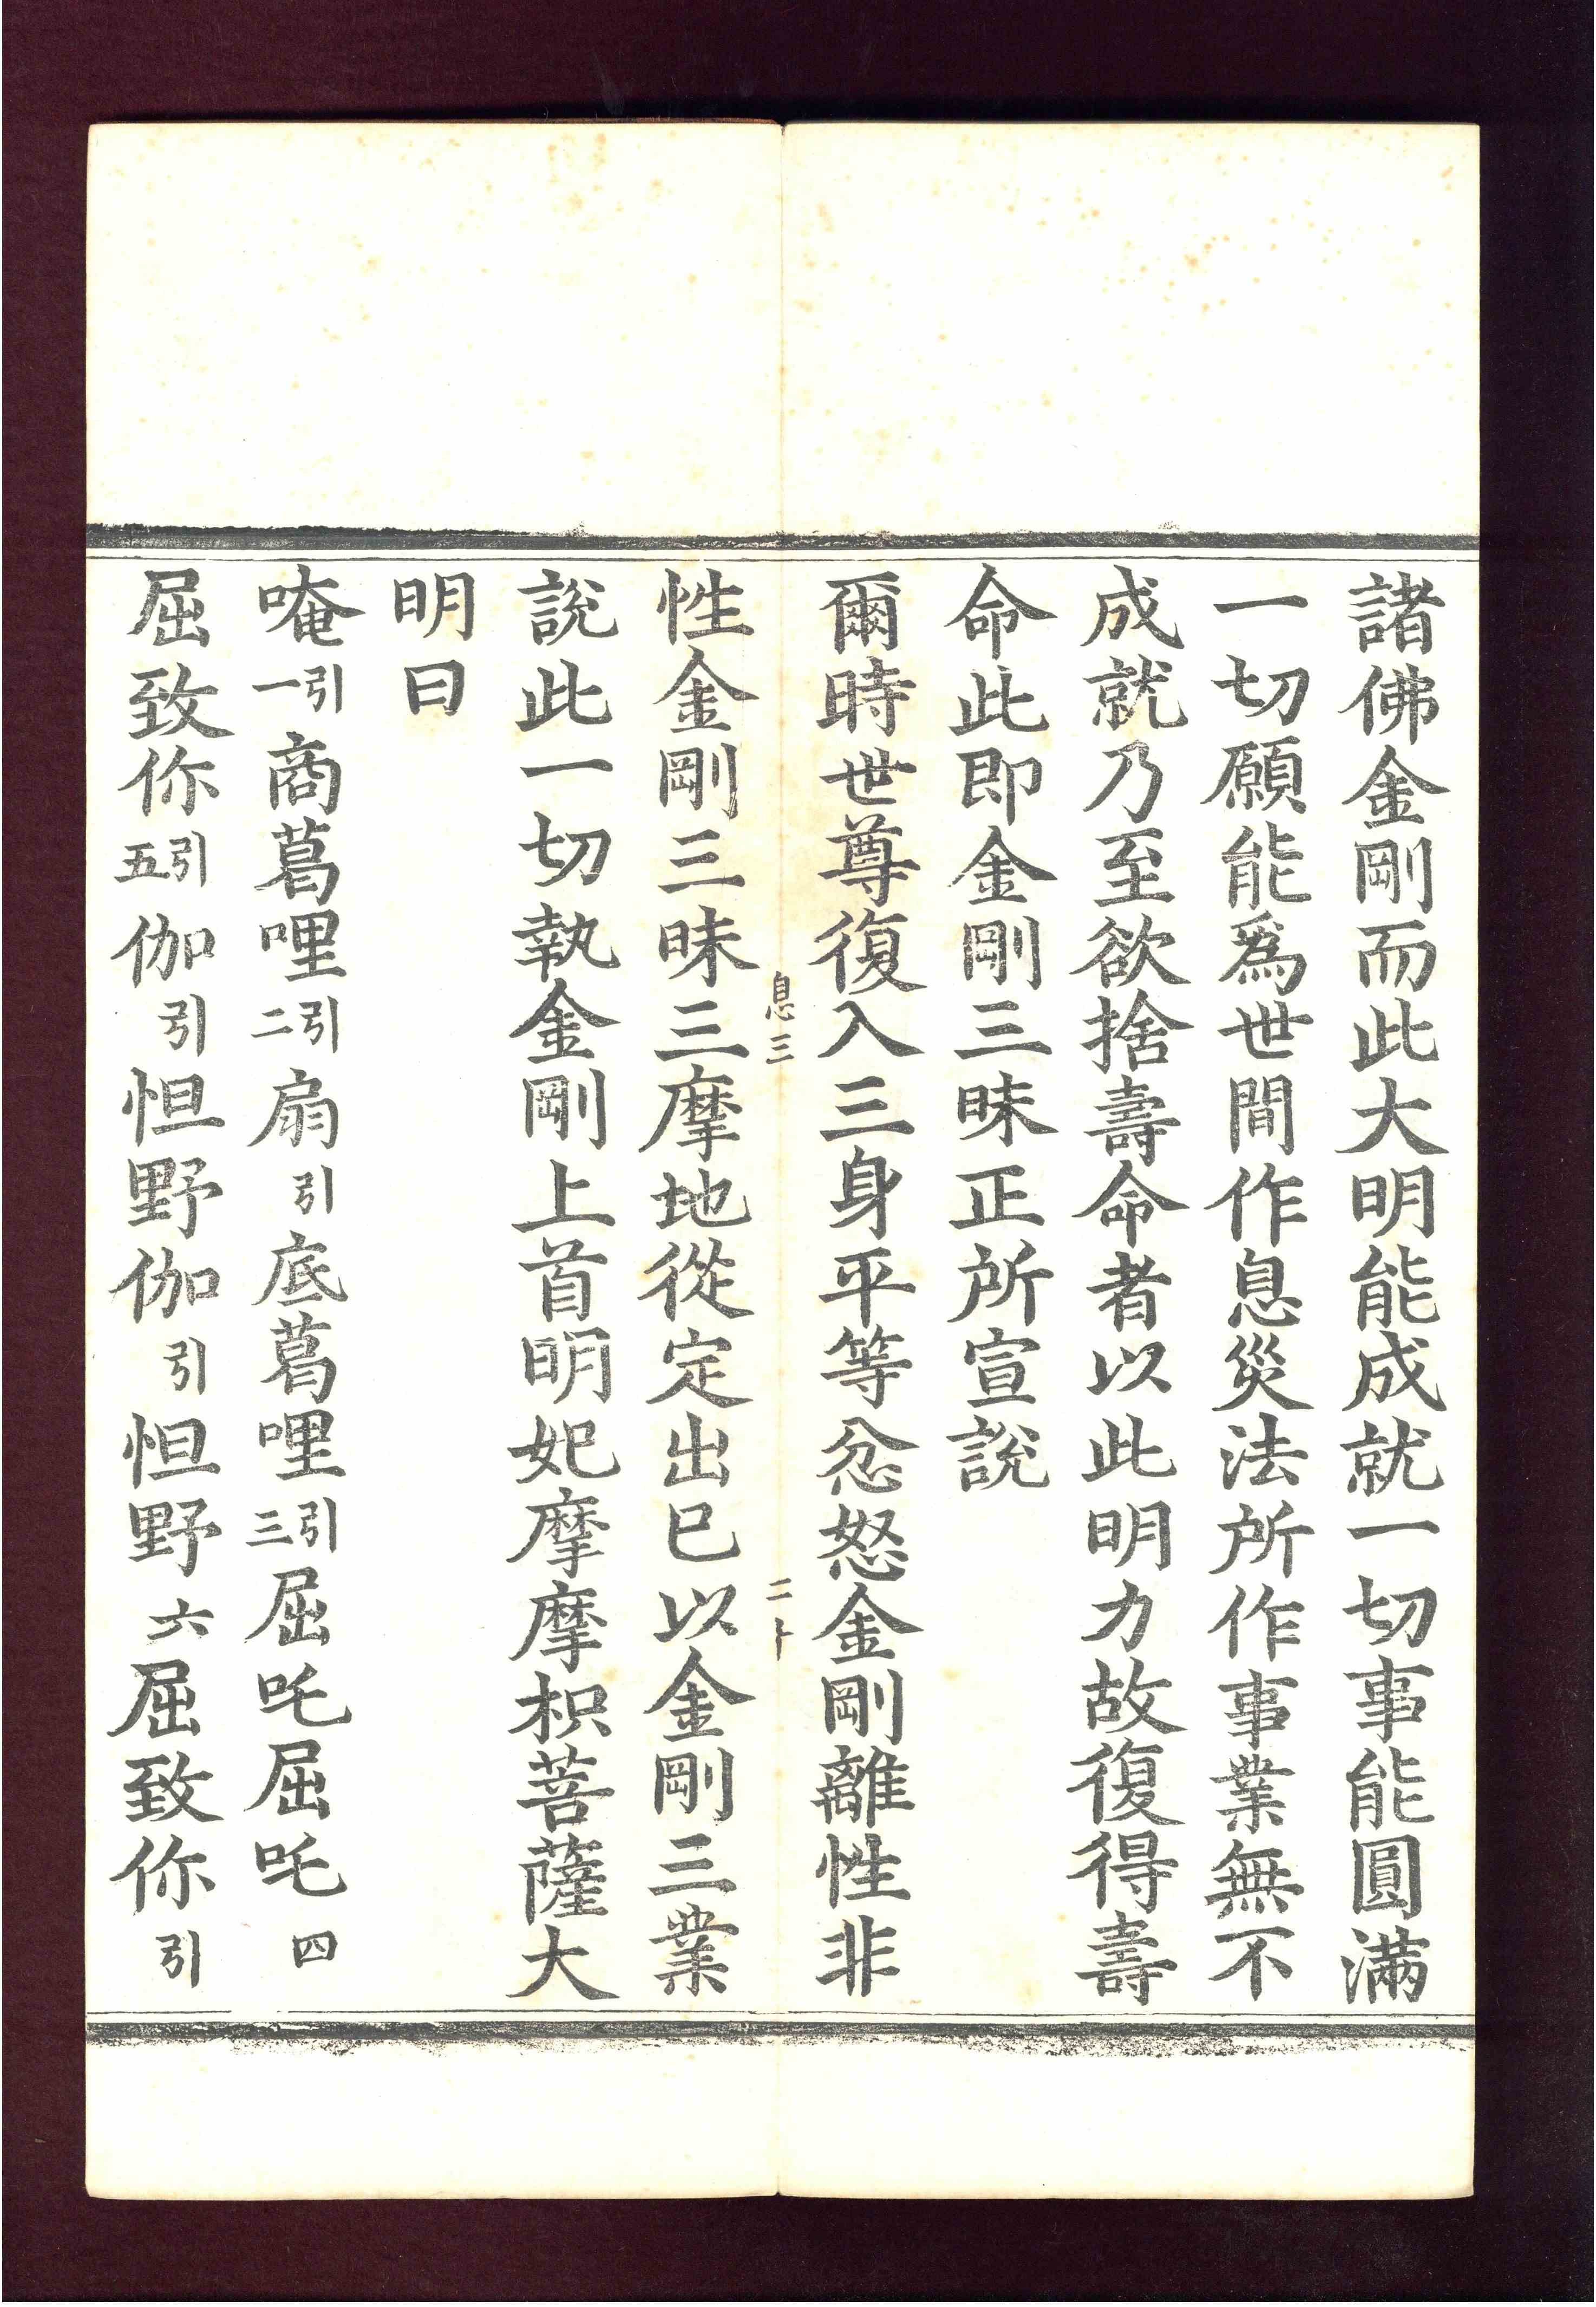 諸佛金剛而此大明能成就一切事能圓滿
一切願能為世間作息災法所作事業無不
成就乃至欲捨壽命者以此明力故復得壽
命此即金剛三昧正所宣說
爾時世尊復入三身平等忿怒金剛離性非
息三 二十
性金剛三昧三摩地從定出已以金剛三業
說此一切執金剛上首明妃摩摩枳菩薩大
明曰
唵引一商葛哩引二扇引底葛哩引三屈吒屈吒四
屈致你引五伽引怛野伽引怛野六屈致你引